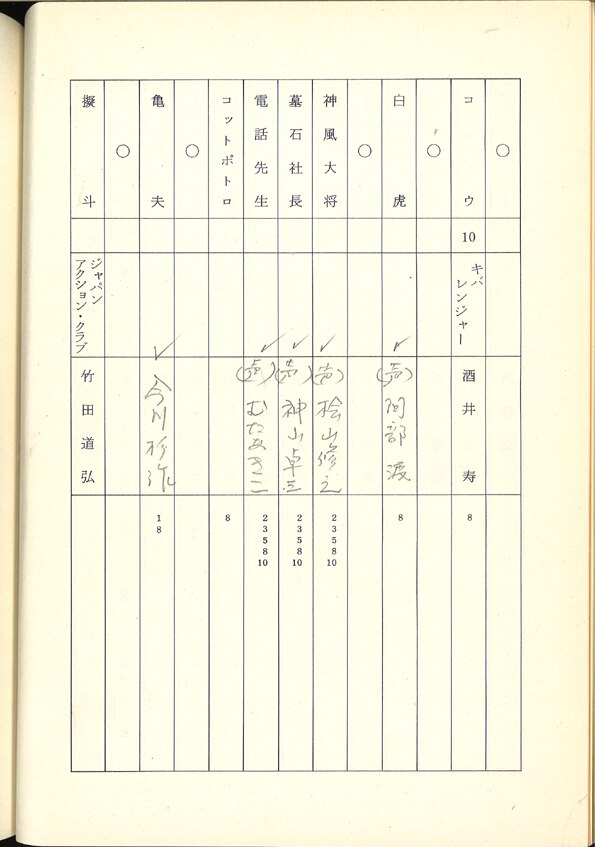 ○
コウ 10 キバレンジャー 酒井寿 8
○
白虎 ✓ (声) 阿部渡 8
○
神風大将 ✓ (声) 桧山修之 2 3 5 8 10
墓石社長 ✓ (声) 神山卓三 2 3 5 8 10
電話先生 ✓ (声) むたあきこ 2 3 5 8 10
コットポトロ 8
○
亀夫 ✓ 今川杉作 1 8
○
擬斗 ジャパンアクション・クラブ 竹田道弘